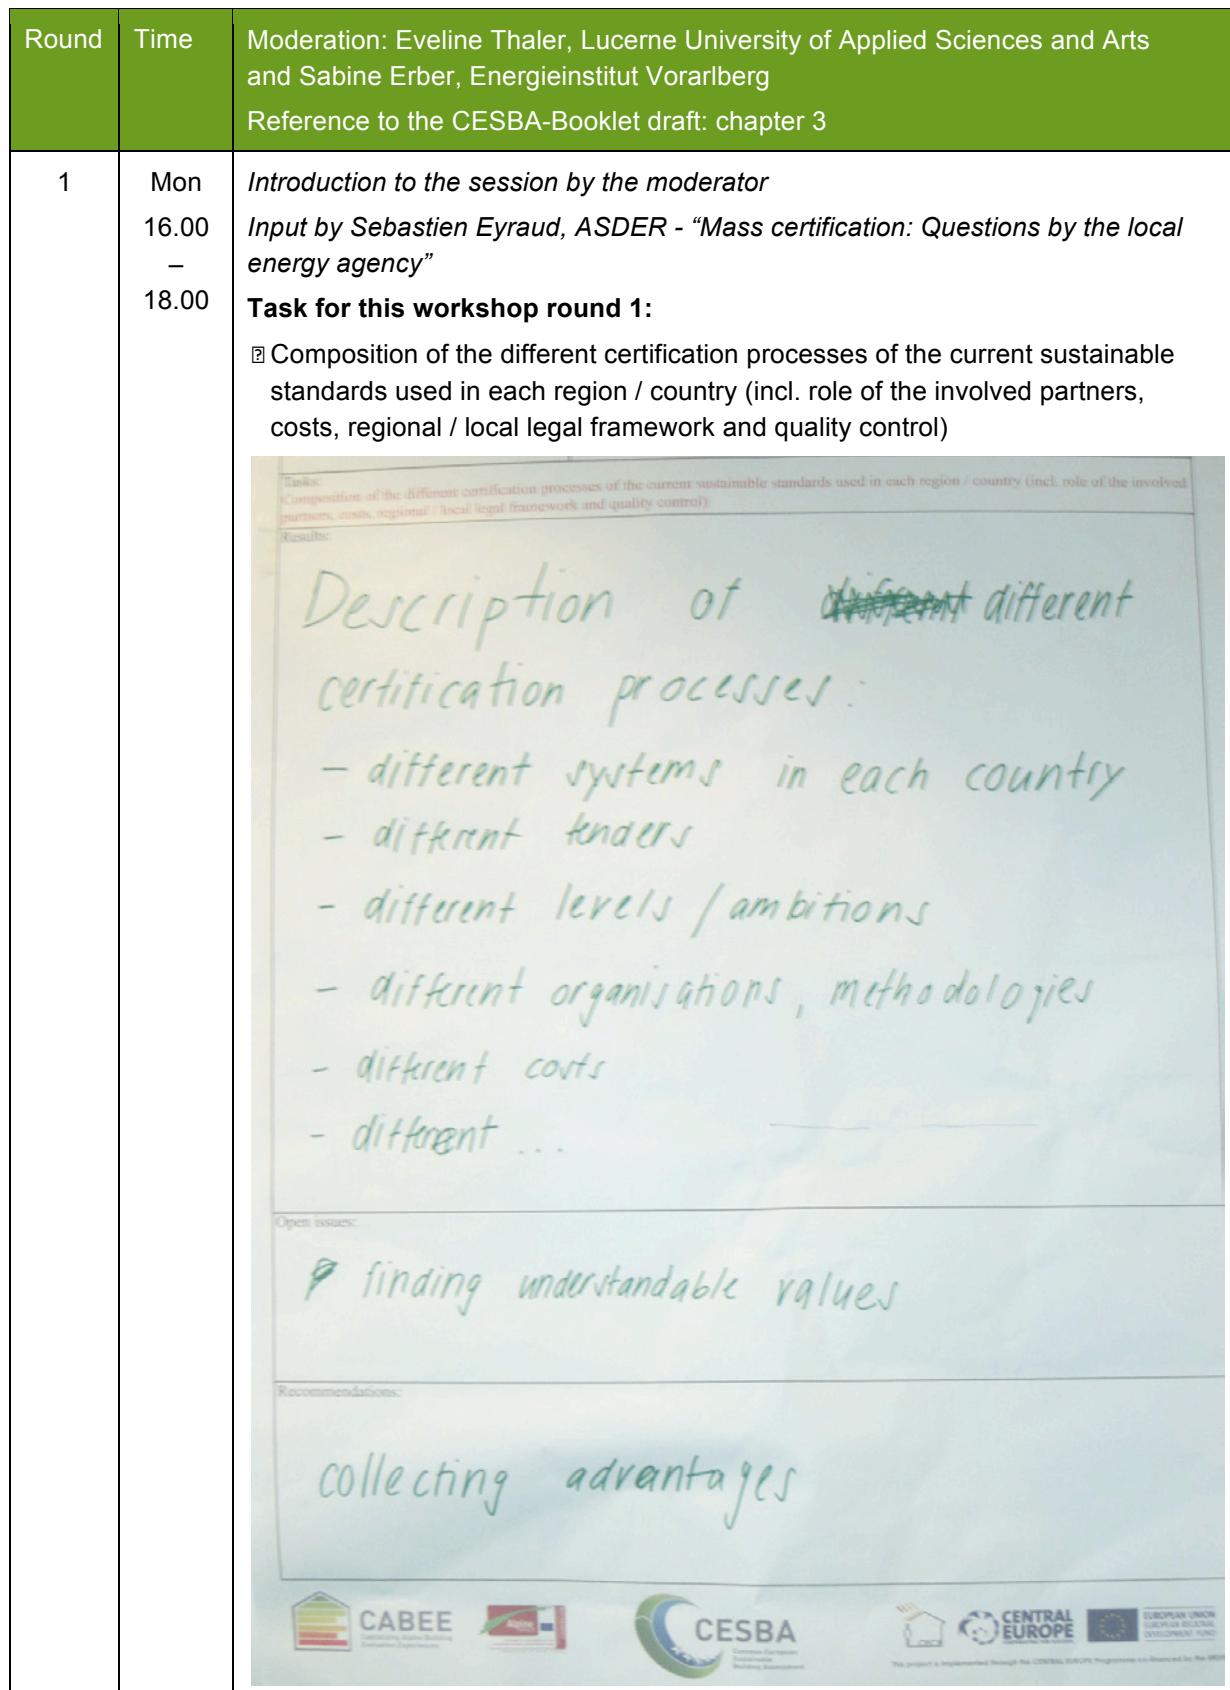 Round
Time
Moderation: Eveline Thaler, Lucerne University of Applied Sciences and Arts
and Sabine Erber, Energieinstitut Vorarlberg
Reference to the CESBA-Booklet draft: chapter 3
1
Mon
16.00
–
18.00
Introduction to the session by the moderator
Input by Sebastien Eyraud, ASDER - “Mass certification: Questions by the local
energy agency”
Task for this workshop round 1:
Composition of the different certification processes of the current sustainable
standards used in each region / country (incl. role of the involved partners,
costs, regional / local legal framework and quality control)
Tasks:
Composition of the different certification processes of the current sustainable standards used in each region / country (incl. role of the involved
partners, costs, regional / local legal framework and quality control)
Results:
Description of different
certification processes:
- different systems in each country
- different tenders
- different levels / ambitions
- different organisations, methodologies
- different costs
- different ...
Open issues:
finding understandable values
Recommendations:
collecting advantages
CABEE
Capitalizing Alpine Building
Evaluation Experiences
Alpine
CESBA
Common European
Sustainable
Building Assessment
CENTRAL
EUROPE
EUROPEAN UNION
EUROPEAN REGIONAL
DEVELOPMENT FUND
This project is implemented through the CENTRAL EUROPE Programme co-financed by the ERDF